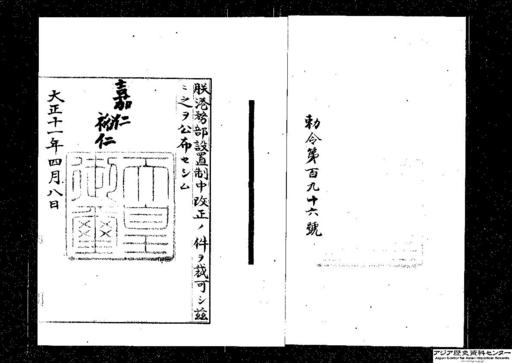 勅令第百九十六號
朕港務部設置制中改正ノ件ヲ裁可シ茲
ニ之ヲ公布セシム
嘉仁
裕仁
天皇御璽
大正十一年四月八日
アジア歴史資料センター
Japan Center for Asian Historical Records